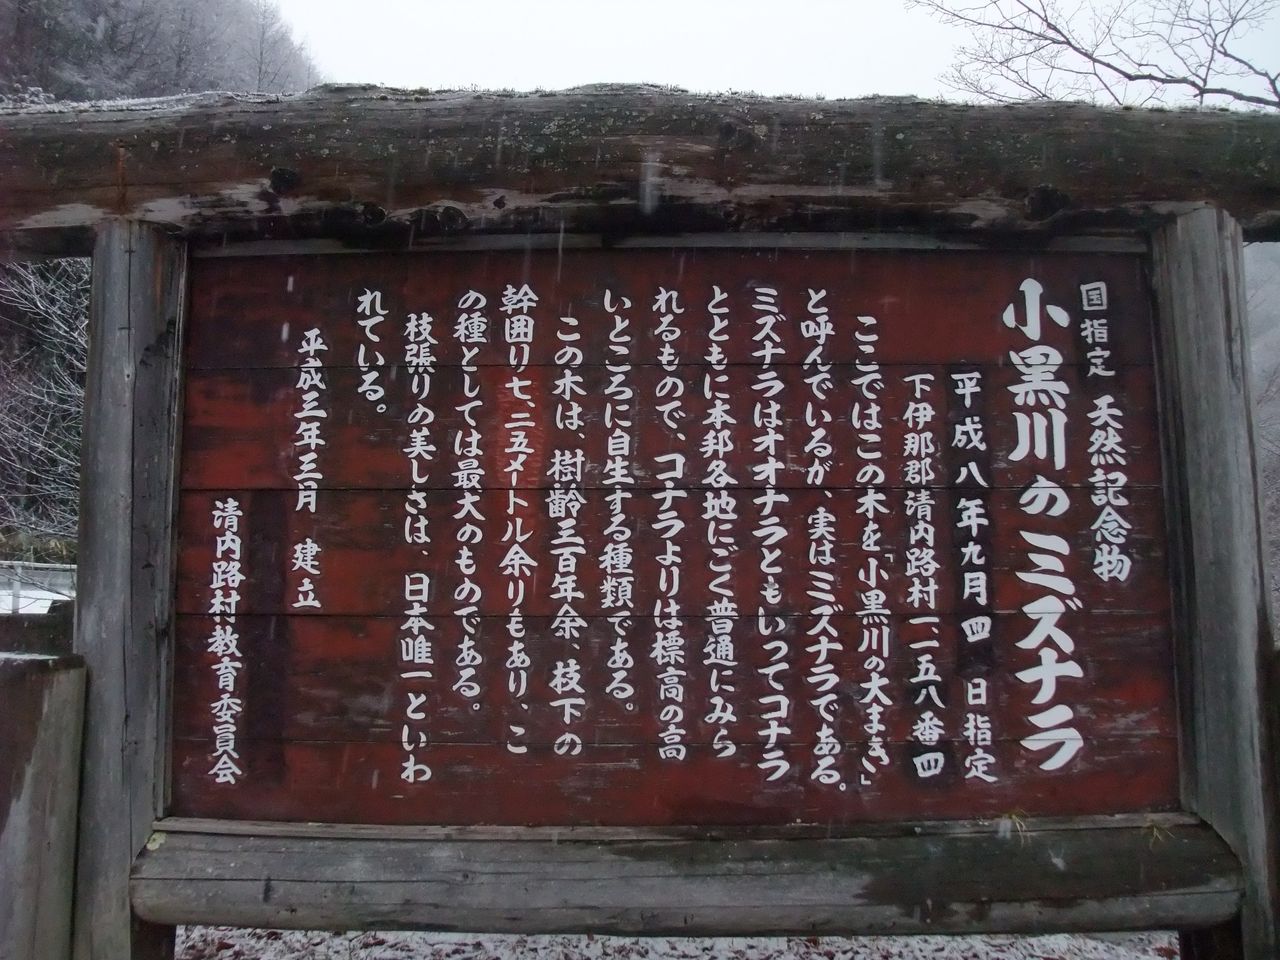 国指定 天然記念物
小黒川のミズナラ
平成八年九月四日指定
下伊那郡清内路村一、一五八番四
ここではこの木を「小黒川の大まき」
と呼んでいるが、実はミズナラである。
ミズナラはオオナラともいってコナラ
とともに本邦各地にごく普通にみら
れるもので、コナラよりは標高の高
いところに自生する種類である。
この木は、樹齢三百年余、枝下の
幹囲り七.二五メートル余りもあり、こ
の種としては最大のものである。
枝張りの美しさは、日本唯一といわ
れている。
平成三年三月 建立
清内路村教育委員会